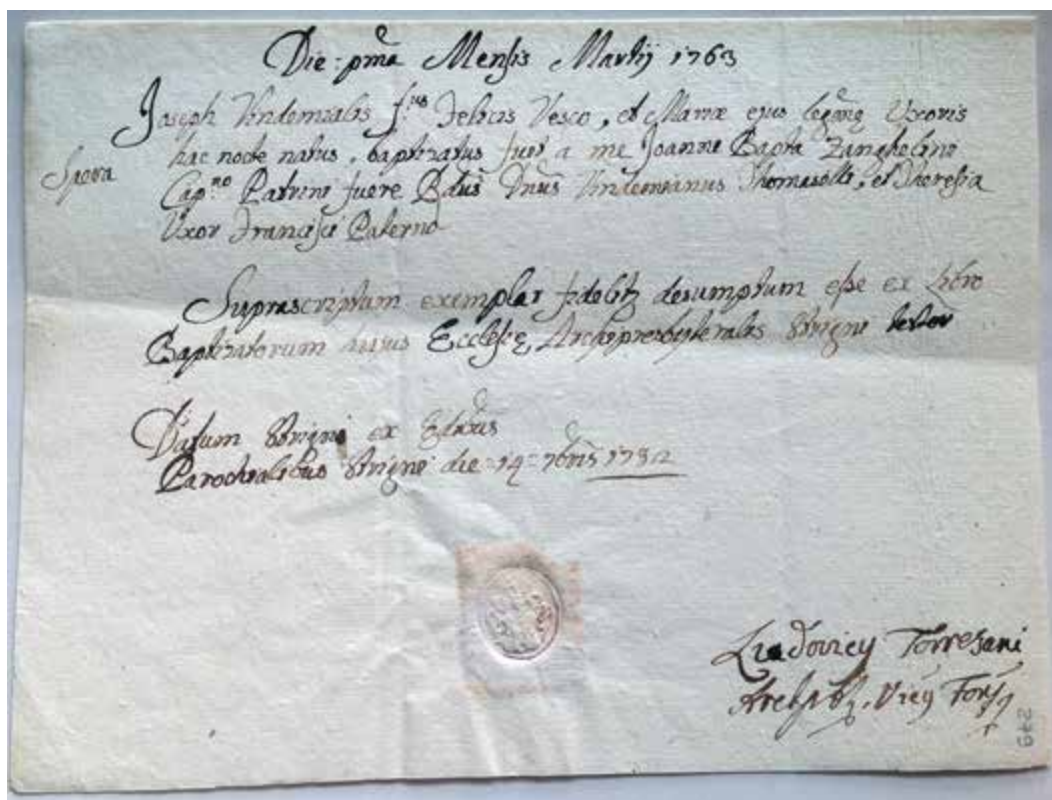 Die pma Mensis Martij 1763
Joseph Vindemialis f.us Felicis Vesco, et Mariæ ejus legmę Uxoris
hac nocte natus, baptizatus fuit a me Joanne Bapta Zanghelino
Spera
Cap.no Patrini fuere Dnus Vindemianus Thomaselli, et Theresia
Uxor Francisci Paterno
Suprascriptum exemplar fidelitz desumptum esse ex Libro
Baptizatorum hujus Ecclesię Archipresbyteralis Strigni testor
Datum Strigni ex Ædibus
Parochialibus Strigni die 14 7bris 1782
Ludovicy Torresani
279